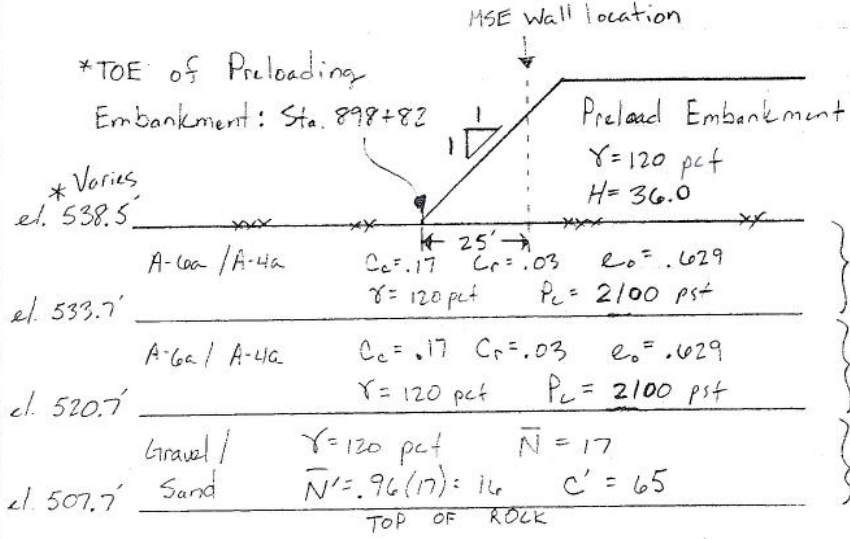 MSE Wall location
*TOE of Preloading
Embankment: Sta. 898+82
1
1
Preload Embankment
γ=120 pcf
H= 36.0
* Varies
el. 538.5'
25'
A-6a / A-4a Cc=.17 Cr=.03 eo=.629
γ=120 pcf Pc= 2100 psf
el. 533.7'
A-6a / A-4a Cc=.17 Cr=.03 eo=.629
γ= 120 pcf Pc= 2100 psf
el. 520.7'
Gravel / γ=120 pcf N̅ = 17
Sand N̅'=.96(17)= 16 C' = 65
el. 507.7'
TOP OF ROCK